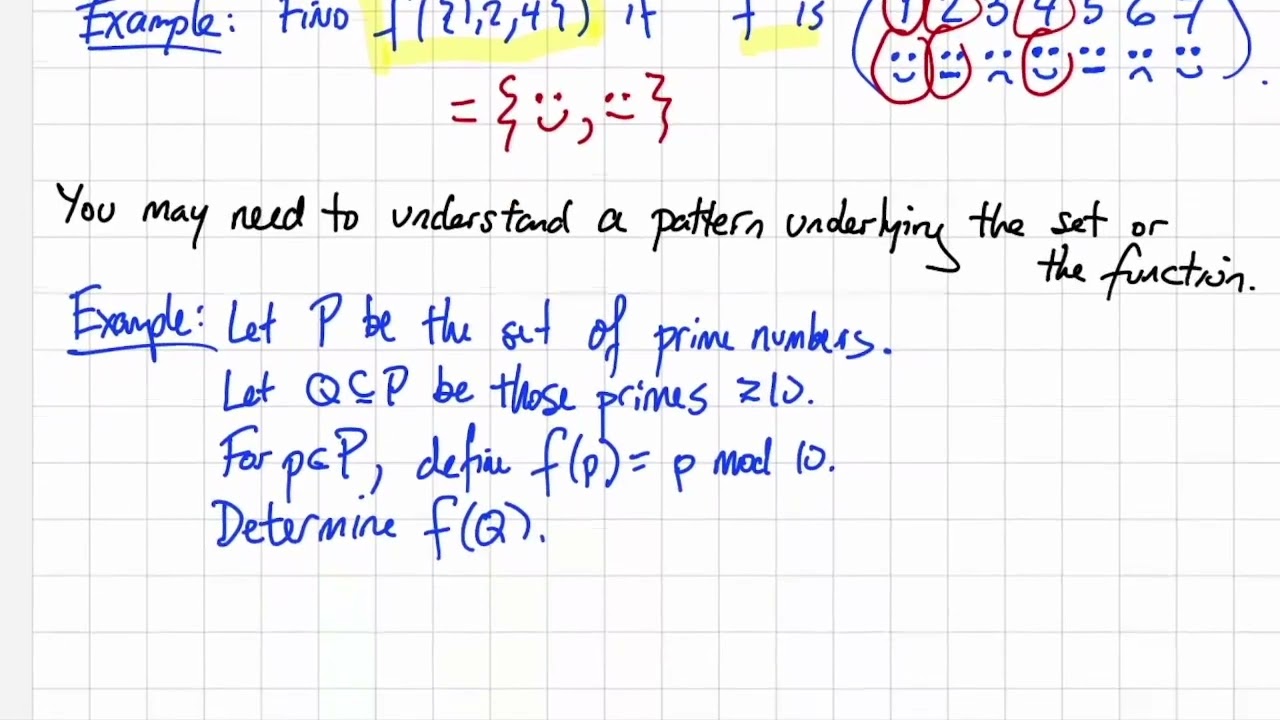 Example: Find f({1,2,4}) if f is (1 2 3 4 5 6 7
= { , }
You may need to understand a pattern underlying the set or
the function.
Example: Let P be the set of prime numbers.
Let Q ⊆ P be those primes ≥ 10.
For p ∈ P, define f(p) = p mod 10.
Determine f(Q).